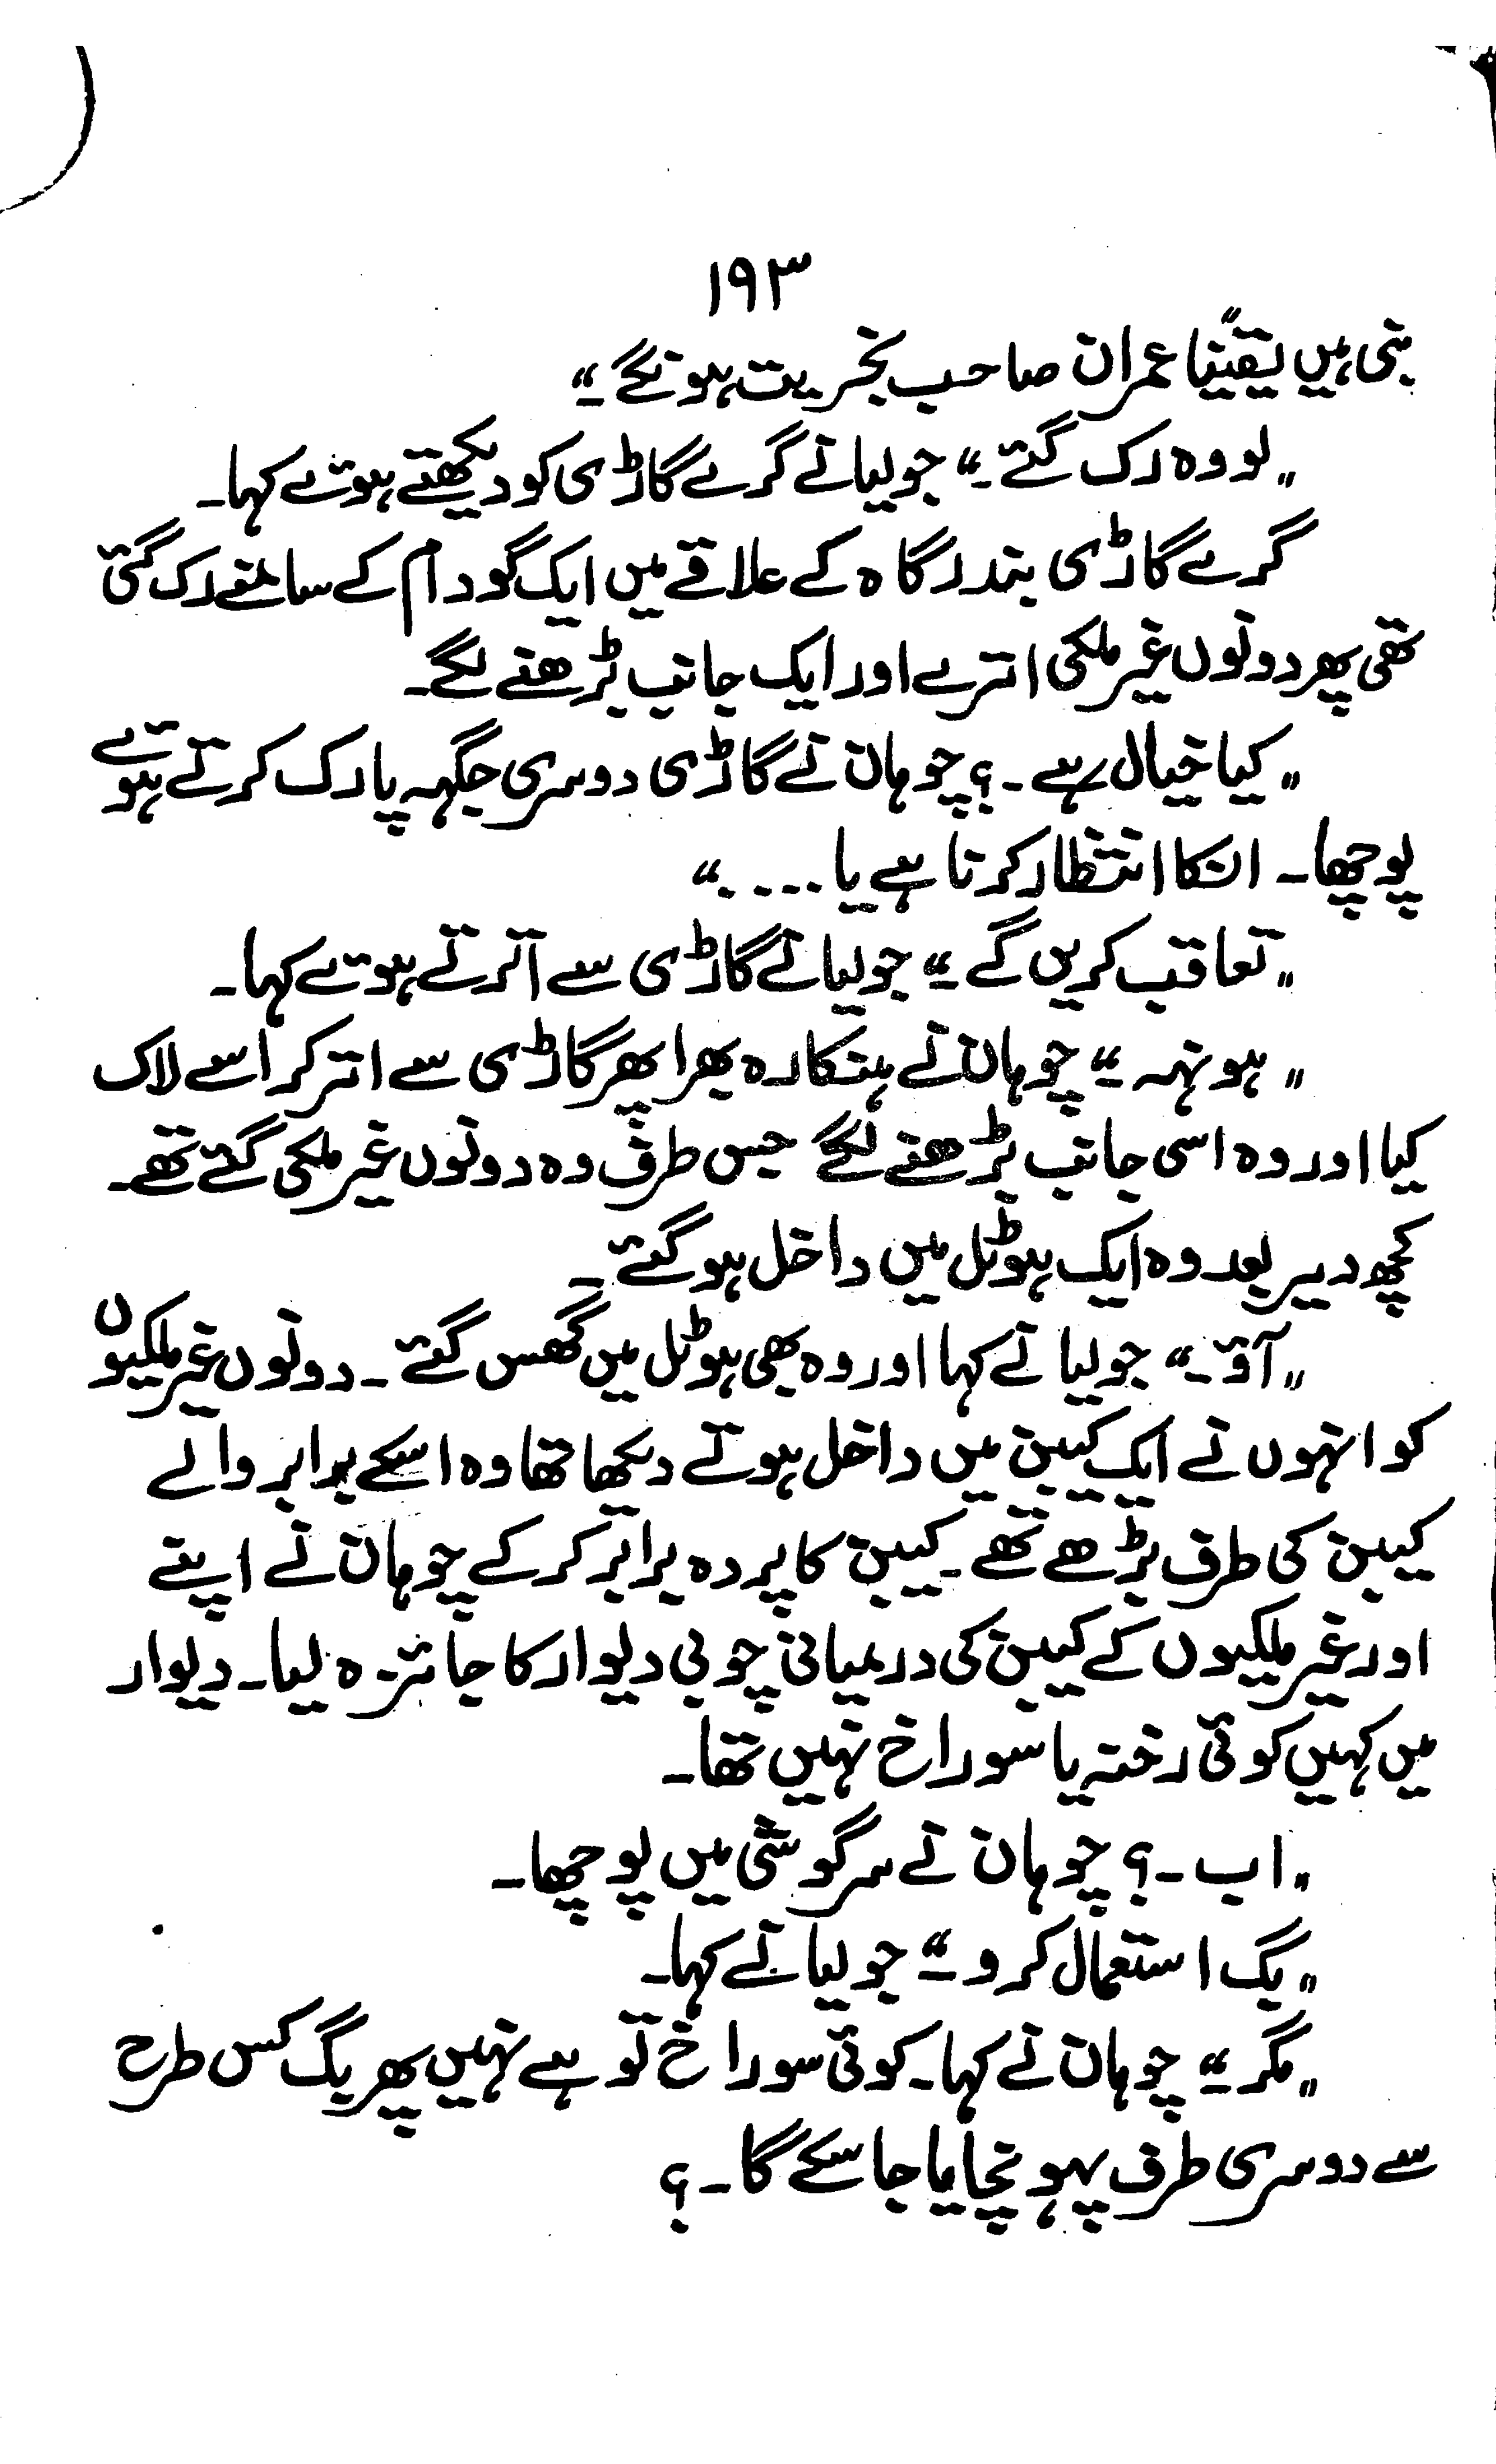 ۱۹۳
بنی ہیں یقیناً عمران صاحب بخریت ہونگے۔"
"لو وہ رک گئے۔" جولیا نے گرے گاڑی کو دیکھتے ہوئے کہا۔
گرے گاڑی بندرگاہ کے علاقے میں ایک گودام کے سامنے رک گئی
تھی پھر دونوں غیر ملکی اترے اور ایک جانب بڑھنے لگے۔
"کیا خیال ہے۔؟ چوہان نے گاڑی دوسری جگہہ پارک کرتے ہوئے
پوچھا۔ انکا انتظار کرنا ہے یا ....."
"تعاقب کریں گے۔" جولیا نے گاڑی سے اترتے ہوئے کہا۔
"ہونہہ۔" چوہان نے ہنکارہ بھرا پھر گاڑی سے اتر کر اسے لاک
کیا اور وہ اسی جانب بڑھنے لگے جس طرف وہ دونوں غیر ملکی گئے تھے۔
کچھ دیر بعد وہ ایک ہوٹل میں داخل ہو گئے۔
"آؤ۔" جولیا نے کہا اور وہ بھی ہوٹل میں گھس گئے۔ دونوں غیر ملکیوں
کو انہوں نے ایک کیبن میں داخل ہوتے دیکھا تھا وہ اسکے برابر والے
کیبن کی طرف بڑھے تھے۔ کیبن کا پردہ برابر کر کے چوہان نے اپنے
اور غیر ملکیوں کے کیبن کی درمیانی چوبی دیوار کا جائزہ لیا۔ دیوار
میں کہیں کوئی رخنہ یا سوراخ نہیں تھا۔
"اب۔؟ چوہان نے سرگوشی میں پوچھا۔
"بگ استعمال کرو۔" جولیا نے کہا۔
"مگر۔" چوہان نے کہا۔ کوئی سوراخ تو ہے نہیں پھر بگ کس طرح
سے دوسری طرف پہونچایا جا سکے گا۔؟